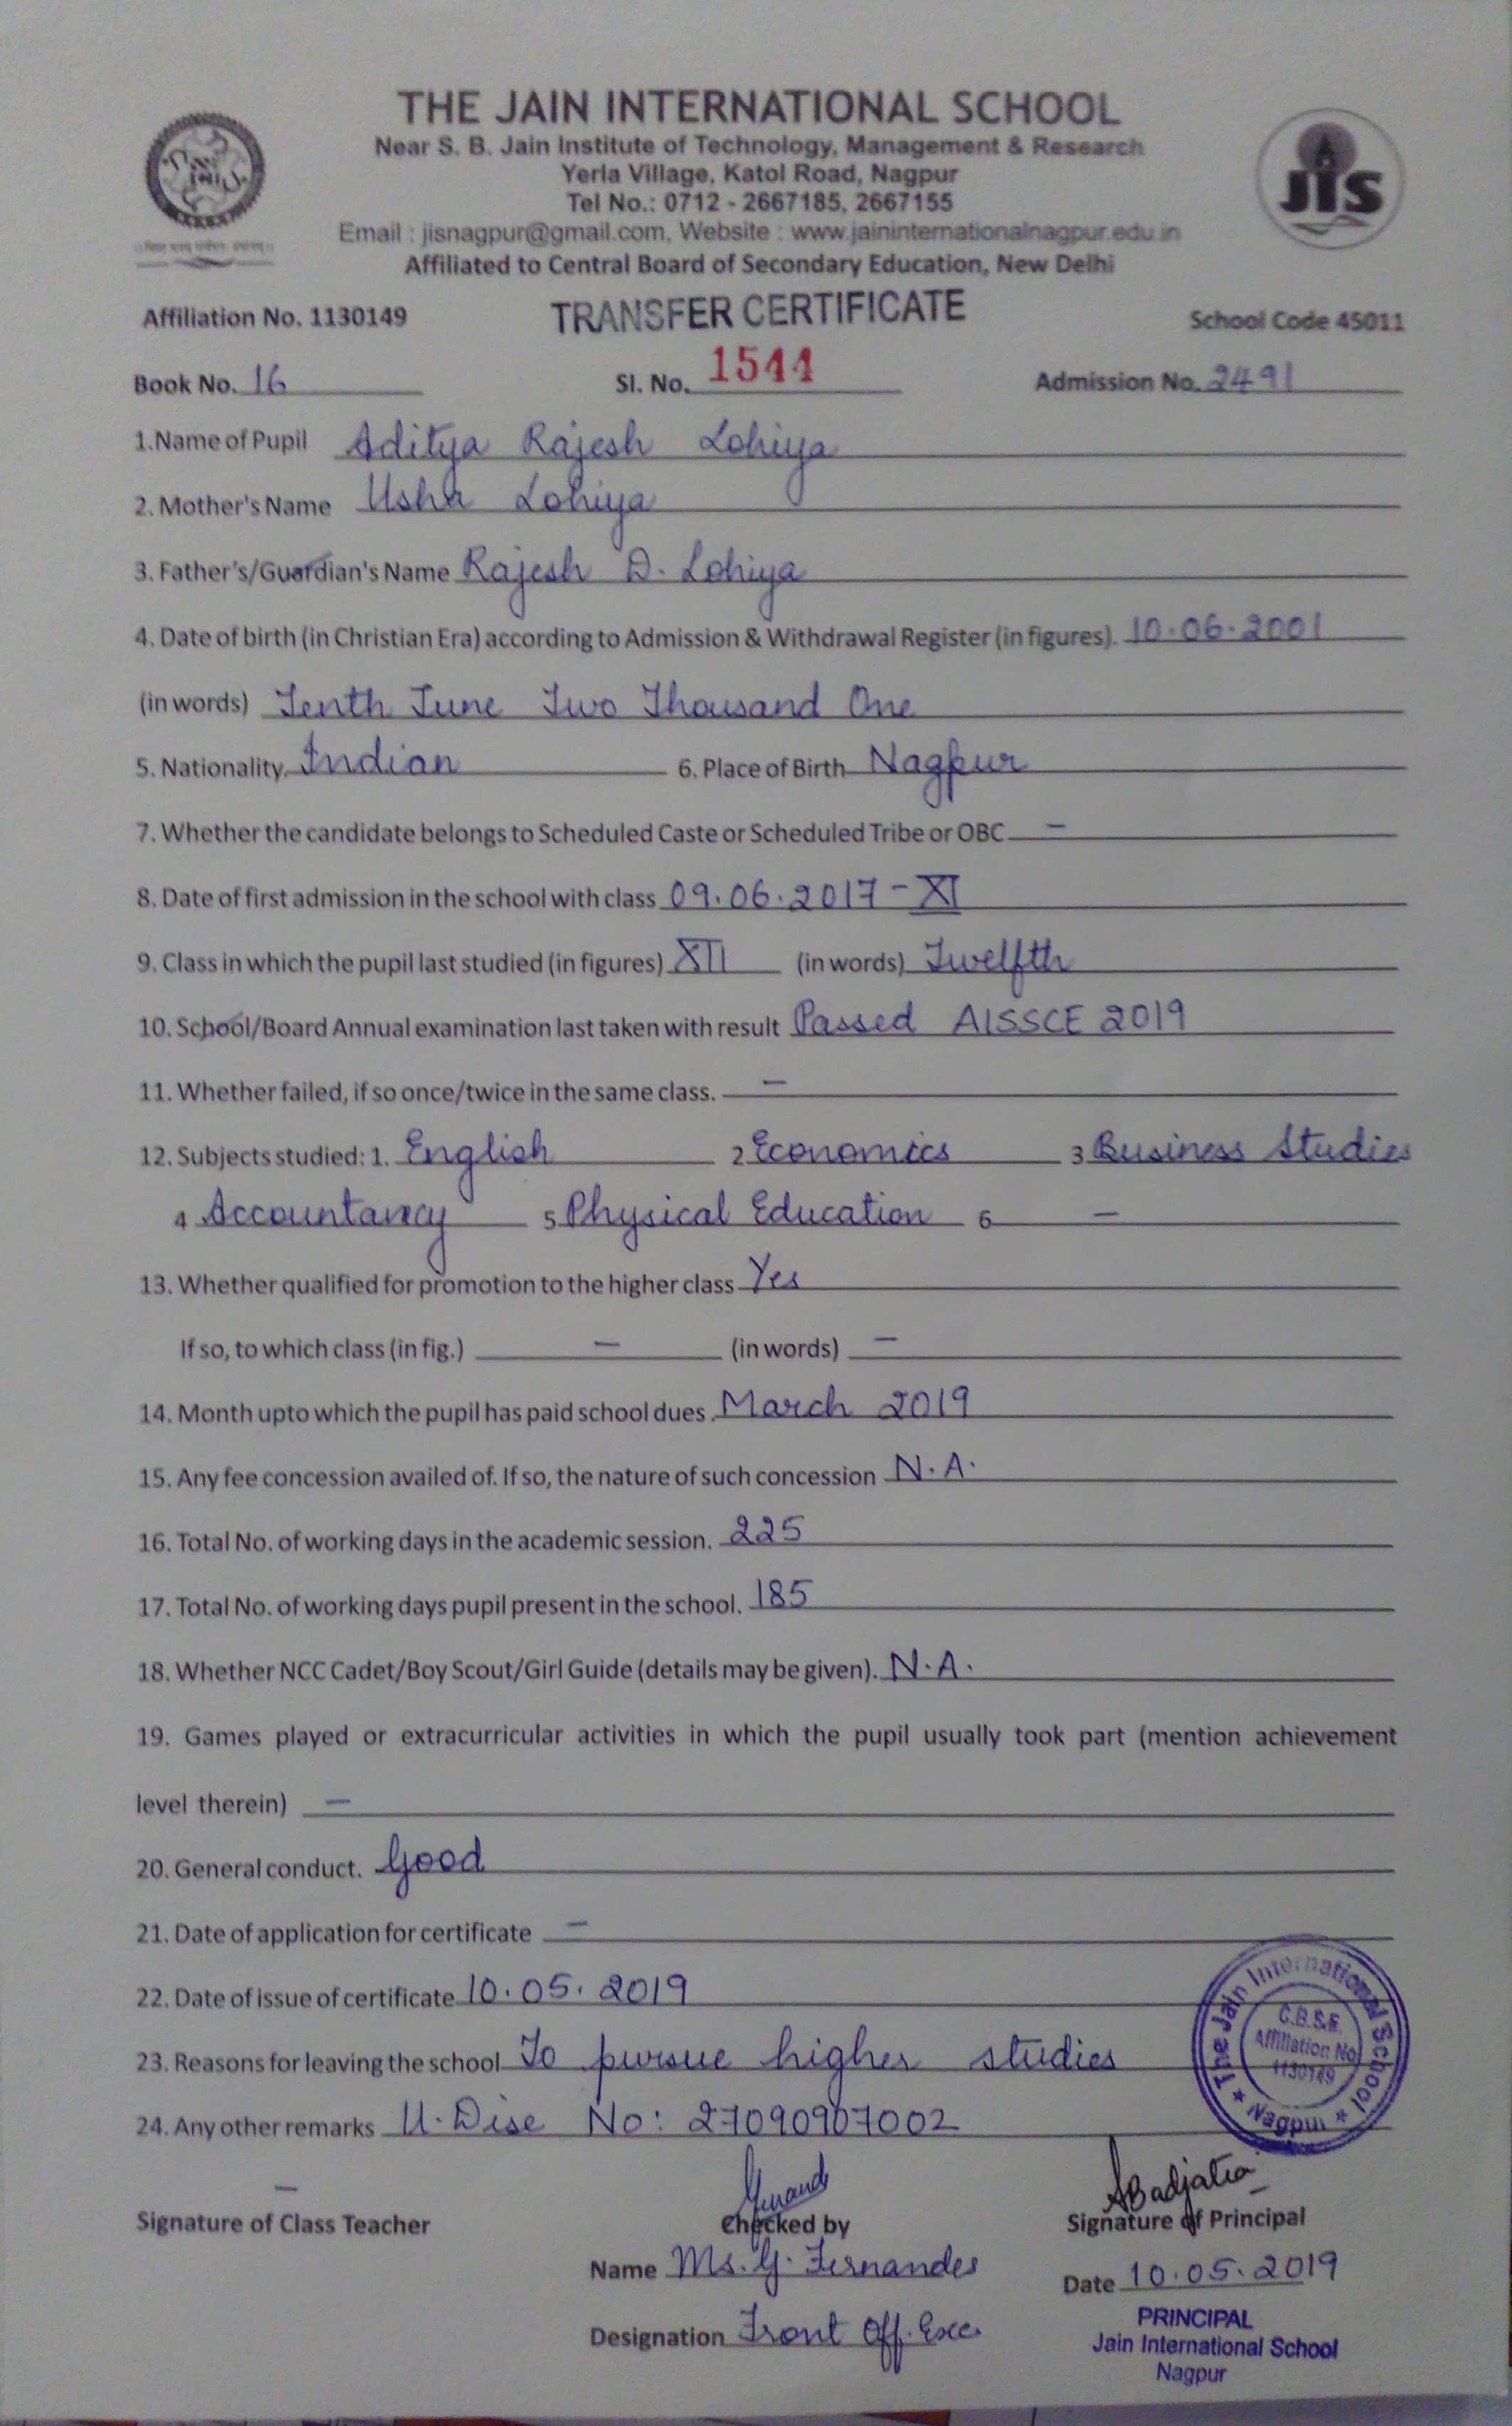 THE JAIN INTERNATIONAL SCHOOL
Near S. B. Jain Institute of Technology, Management & Research
Yerla Village, Katol Road, Nagpur
Tel No.: 0712 - 2667185, 2667155
Email : jisnagpur@gmail.com, Website : www.jaininternationalnagpur.edu.in
Affiliated to Central Board of Secondary Education, New Delhi
JIS
Affiliation No. 1130149 TRANSFER CERTIFICATE School Code 45011
Book No. 16 Sl. No. 1544 Admission No. 2491
1.Name of Pupil Aditya Rajesh Lohiya
2. Mother's Name Usha Lohiya
3. Father's/Guardian's Name Rajesh D. Lohiya
4. Date of birth (in Christian Era) according to Admission & Withdrawal Register (in figures). 10.06.2001
(in words) Tenth June Two Thousand One
5. Nationality. Indian 6. Place of Birth Nagpur
7. Whether the candidate belongs to Scheduled Caste or Scheduled Tribe or OBC –
8. Date of first admission in the school with class 09.06.2017 - XI
9. Class in which the pupil last studied (in figures) XII (in words) Twelfth
10. School/Board Annual examination last taken with result Passed AISSCE 2019
11. Whether failed, if so once/twice in the same class. –
12. Subjects studied: 1. English 2 Economics 3 Business Studies
4 Accountancy 5 Physical Education 6 –
13. Whether qualified for promotion to the higher class Yes
If so, to which class (in fig.) – (in words) –
14. Month upto which the pupil has paid school dues. March 2019
15. Any fee concession availed of. If so, the nature of such concession N.A.
16. Total No. of working days in the academic session. 225
17. Total No. of working days pupil present in the school. 185
18. Whether NCC Cadet/Boy Scout/Girl Guide (details may be given). N.A.
19. Games played or extracurricular activities in which the pupil usually took part (mention achievement
level therein) –
20. General conduct. Good
21. Date of application for certificate –
22. Date of issue of certificate 10.05.2019
23. Reasons for leaving the school To pursue higher studies
24. Any other remarks U.Dise No: 27090907002
The Jain International School
C.B.S.E.
Affiliation No
1130149
Nagpur
–
ABadjatia
Signature of Class Teacher Checked by Signature of Principal
Name Ms. G. Fernandes Date 10.05.2019
Designation Front Off. Exe.
PRINCIPAL
Jain International School
Nagpur